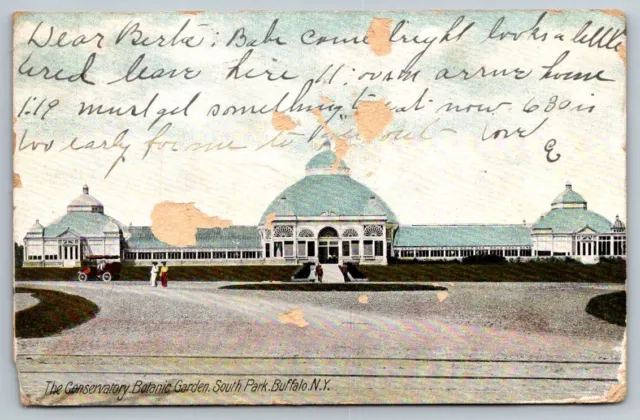 Dear Berta: Babe come bright looks a little
tired leave here 11:00 am arrive home
1:19 must get something to eat now 6 30 is
too early for me to out Love
E
The Conservatory, Botanic Garden, South Park, Buffalo, N.Y.